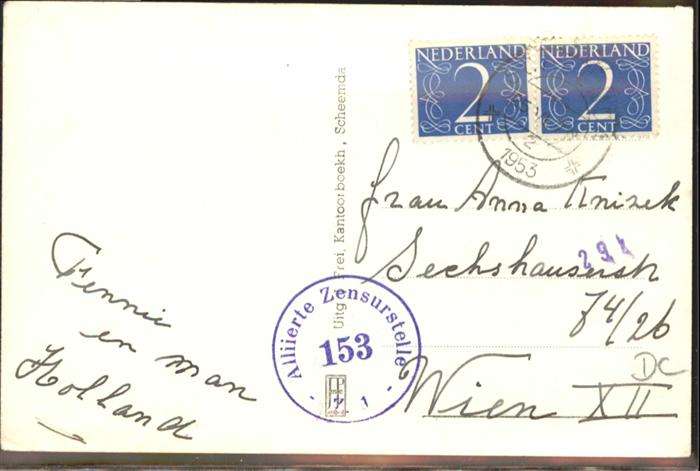 NEDERLAND
2
CENT
NEDERLAND
2
CENT
2
1953
Frau Anna Knizek
Sechshauserstr
74/26
Wien XII
DC
Uitg Frei, Kantoorboekh, Scheemda
Alliierte Zensurstelle
153
1
Fennie
en man
Holland